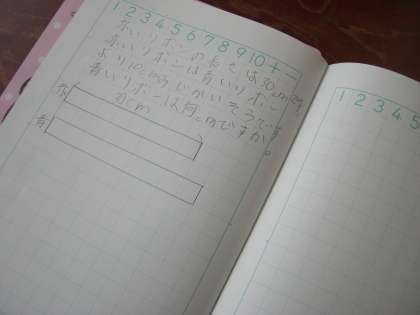 1 2 3 4 5 6 7 8 9 10 + -
赤いリボンの長さは30cmです。
赤いリボンは青いリボン
より10cmみじかいそうです。
青いリボンは何cmですか。
赤
青
1 2 3 4 5